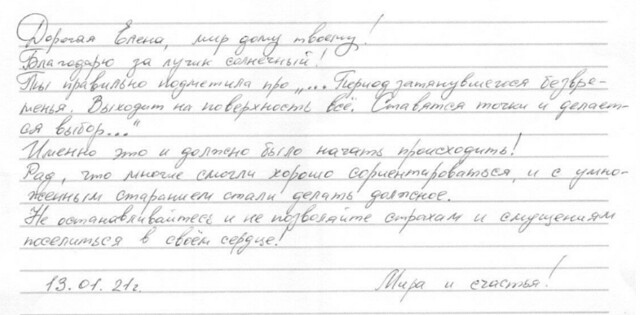 Дорогая Елена, мир дому твоему!
Благодарю за лучик солнечный!
Ты правильно подметила про „... Период затянувшегося безвре-
менья. Выходит на поверхность всё. Ставятся точки и делает-
ся выбор..."
Именно это и должно было начать происходить!
Рад, что многие смогли хорошо сориентироваться, и с умно-
женным старанием стали делать должное.
Не останавливайтесь и не позволяйте страхам и смущениям
поселиться в своём сердце!
13.01.21г. Мира и счастья!